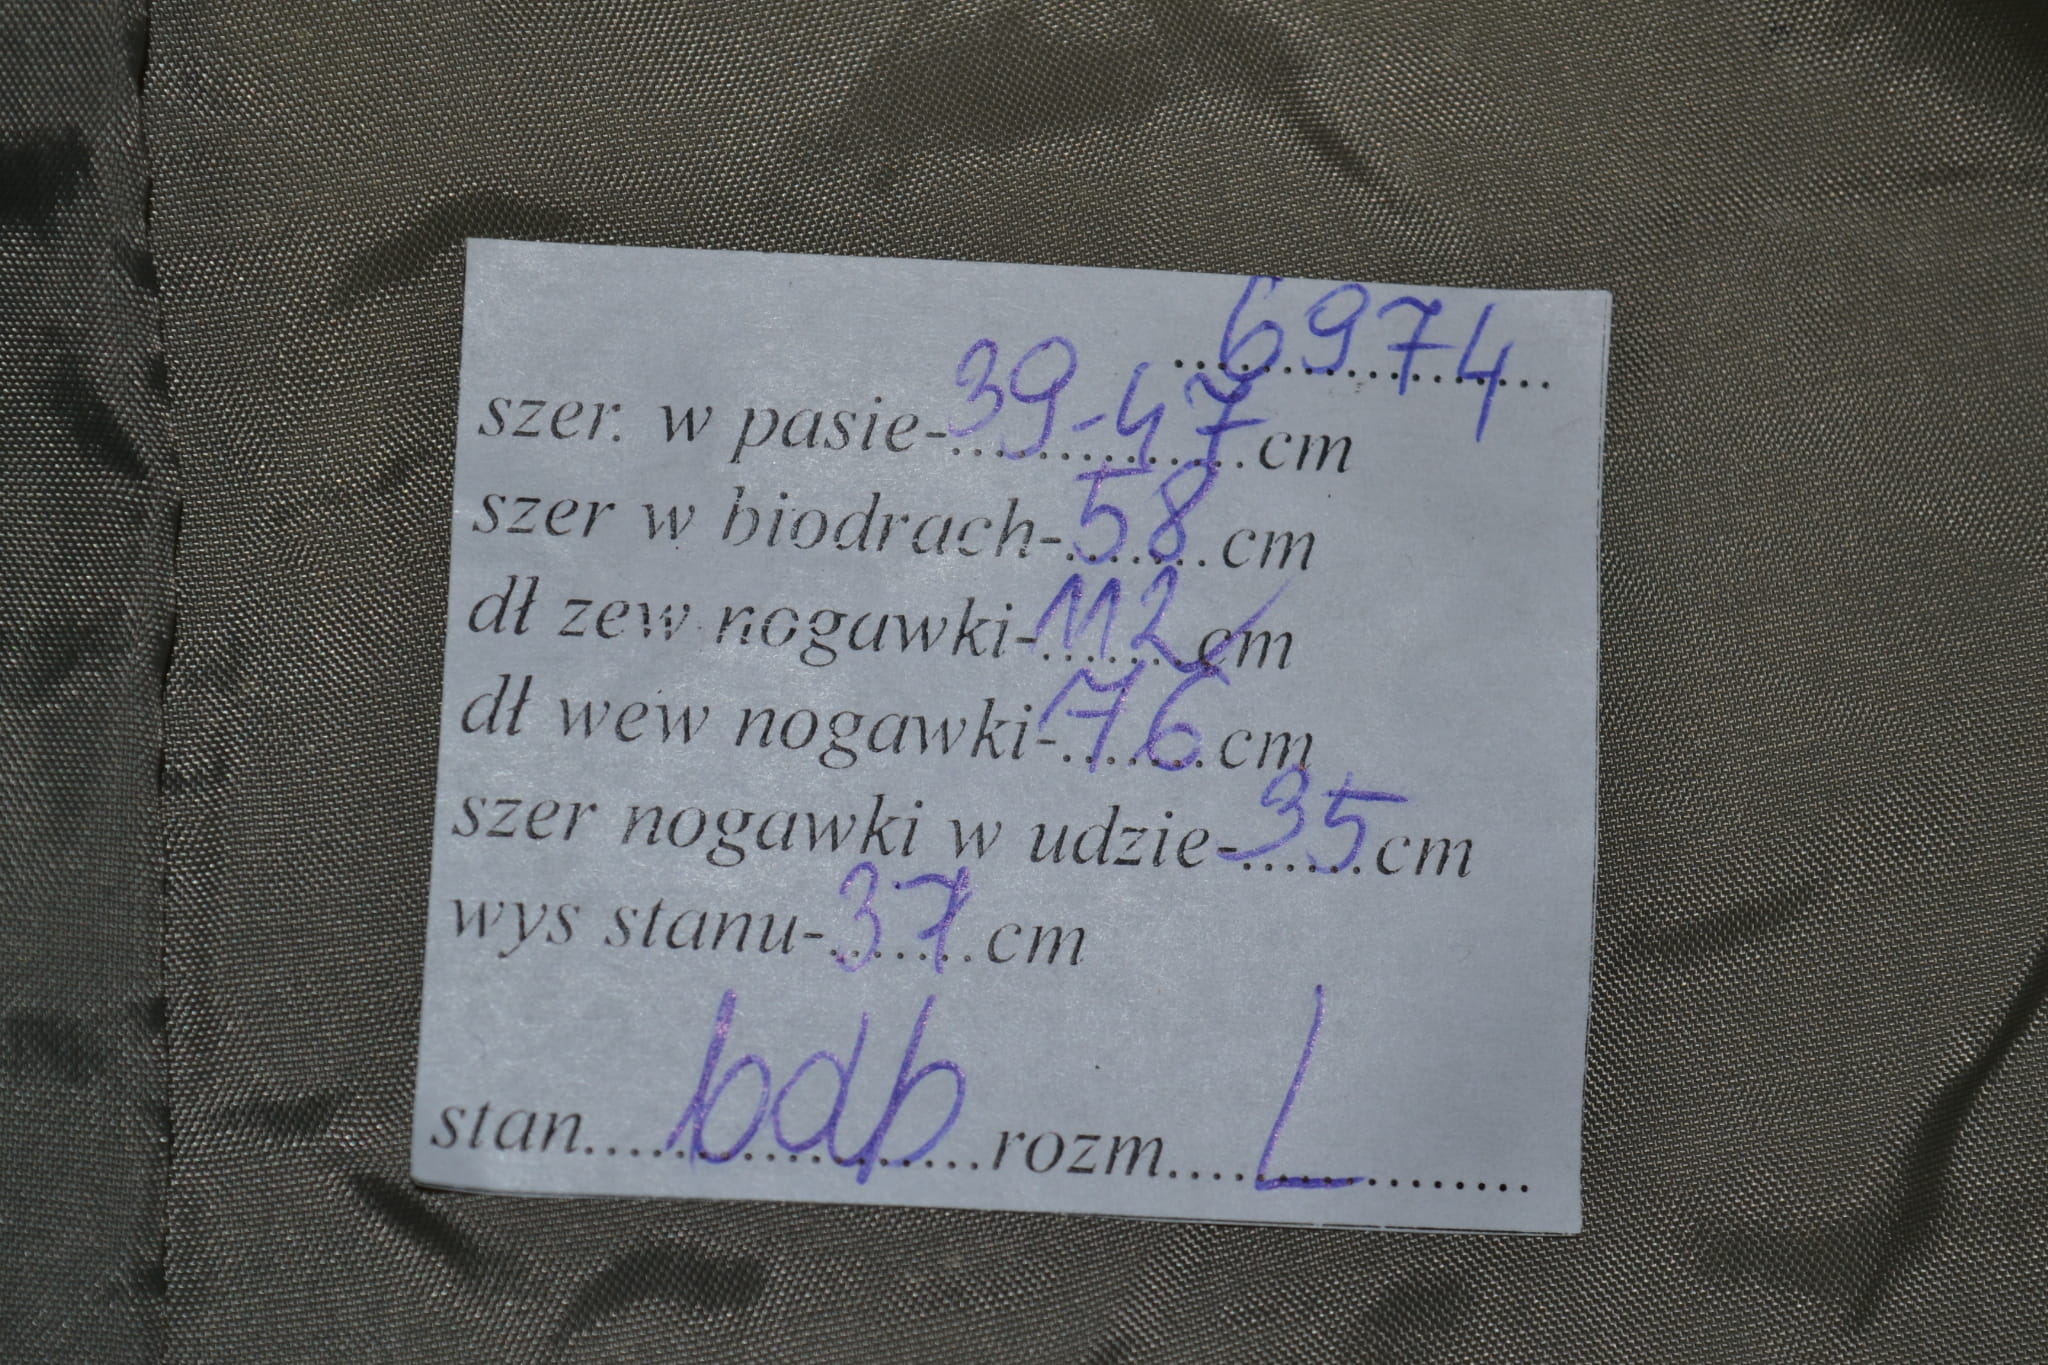 6974
szer. w pasie-39-47cm
szer w biodrach-58cm
dł zew nogawki-112cm
dł wew nogawki-76cm
szer nogawki w udzie-35cm
wys stanu-37cm
stan....bdb....rozm....L....